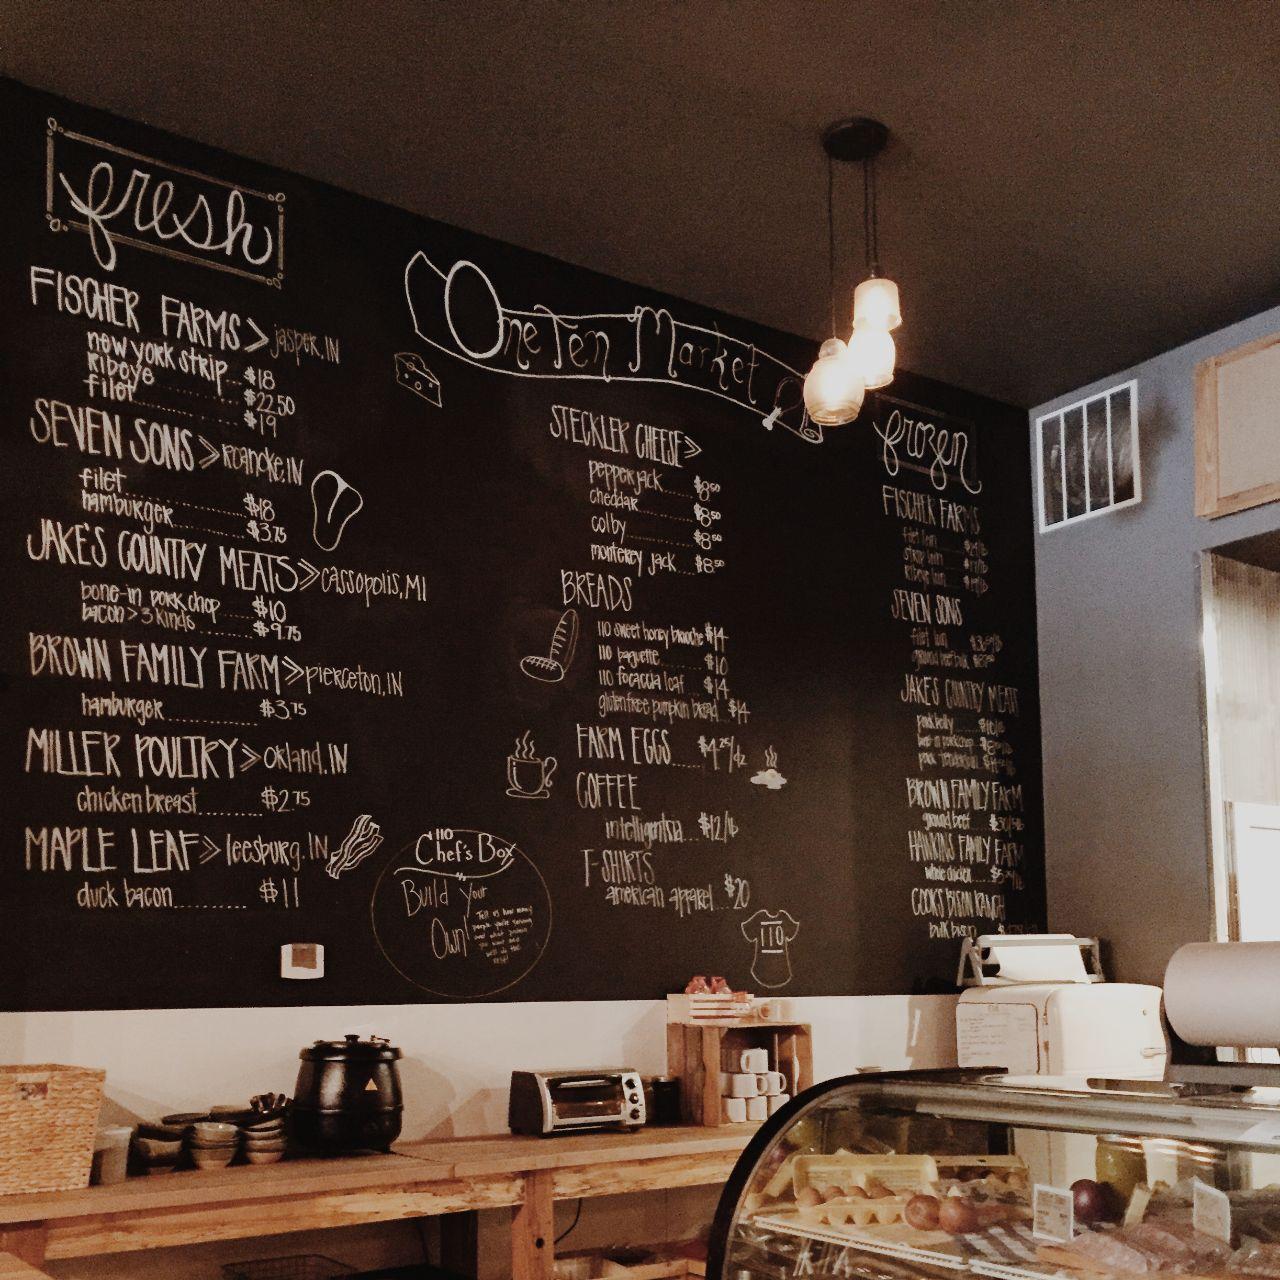 fresh
FISCHER FARMS > jasper, IN
new york strip $18
ribeye $22.50
filet $19
SEVEN SONS >> roanoke, IN
filet $18
hamburger $3.75
JAKE'S COUNTRY MEATS >> cassopolis, MI
bone-in pork chop $10
bacon > 3 kinds $9.75
BROWN FAMILY FARM >> pierceton, IN
hamburger $3.75
MILLER POULTRY >> orland, IN
chicken breast $2.75
MAPLE LEAF >> leesburg, IN
duck bacon $11
110
Chef's Box
Build your
Own!
Tell us how many
people you're serving
and what protein
you want and
we'll do the
rest!
One Ten Market
STECKLER CHEESE >>
pepper jack $8.50
cheddar $8.50
colby $8.50
monterey jack $8.50
BREADS
110 sweet honey brioche $14
110 baguette $10
110 focaccia loaf $14
gluten free pumpkin bread $14
FARM EGGS $4.25/dz
COFFEE
intelligentsia $12/lb
T-SHIRTS
american apparel $20
110
frozen
FISCHER FARMS
filet loin
strip loin
ribeye loin
SEVEN SONS
filet loin
ground beef bulk
JAKE'S COUNTRY MEAT
pork belly
pork tenderloin
BROWN FAMILY FARM
ground beef
HAWKINS FAMILY FARM
whole chicken
COOK'S BISON RANCH
bulk bison